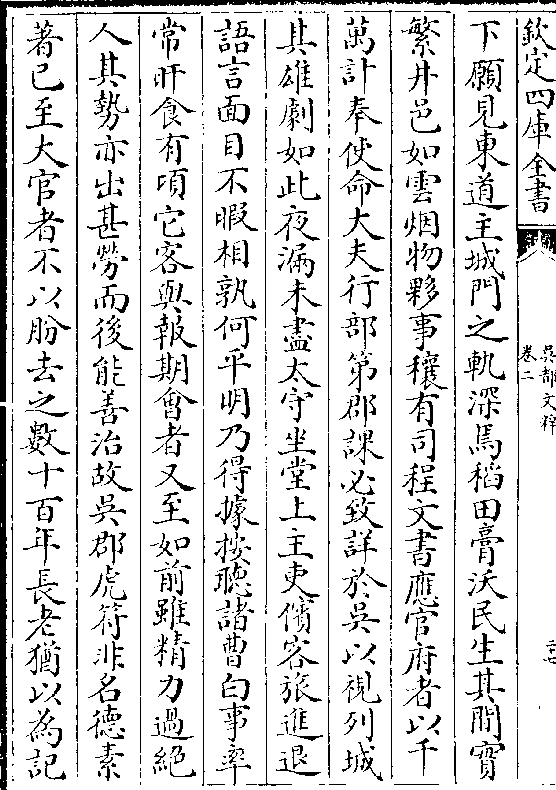 欽定四庫全書
吳都文粹
卷二
二七
下願見東道主城門之軌深焉稻田膏沃民生其間實
繁井邑如雲烟物夥事穰有司程文書應官府者以千
萬計奉使命大夫行部第郡課必致詳於吳以視列城
其雄劇如此夜漏未盡太守坐堂上主吏儐客旅進退
語言面目不暇相孰何平明乃得據按聽諸曹白事率
常旰食有頃它客與報期會者又至如前雖精力過絶
人其勢亦出甚勞而後能善治故吳郡虎符非名德素
著已至大官者不以肦去之數十百年長老猶以為記